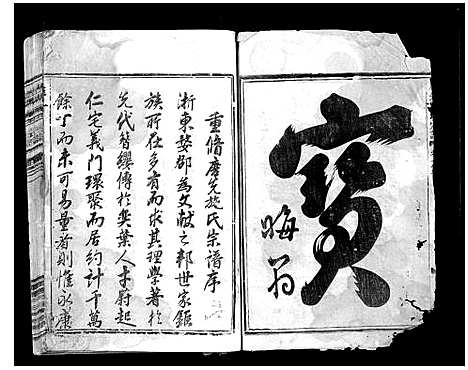 寶
晦翁
重脩庠先施氏宗譜序
浙東婺郡為文献之邦世家鉅
族所在多有而求其理學著於
先代簪纓傳於奕葉人才蔚起
仁宅義門環聚而居約計千萬
餘丁而未可易量者則惟永康